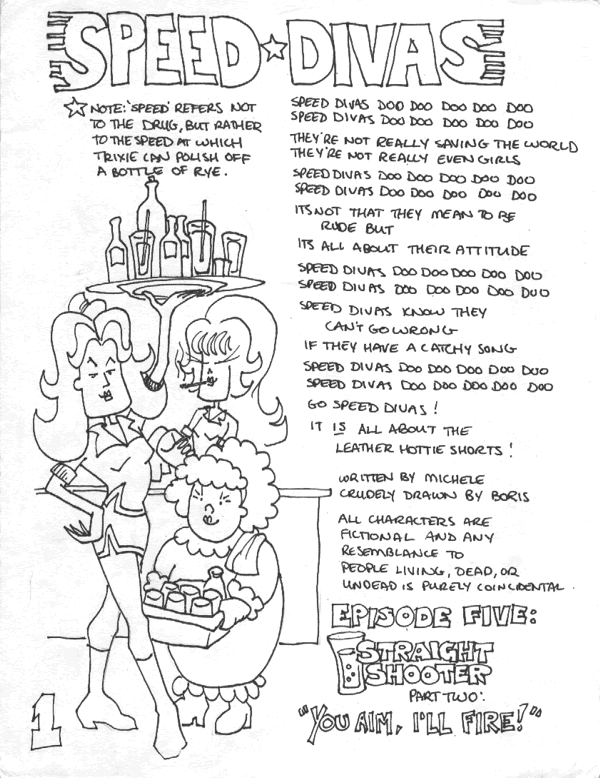 SPEED ☆ DIVAS
☆ NOTE: 'SPEED' REFERS NOT
TO THE DRUG, BUT RATHER
TO THE SPEED AT WHICH
TRIXIE CAN POLISH OFF
A BOTTLE OF RYE.
SPEED DIVAS DOO DOO DOO DOO DOO
SPEED DIVAS DOO DOO DOO DOO DOO
THEY'RE NOT REALLY SAVING THE WORLD
THEY'RE NOT REALLY EVEN GIRLS
SPEED DIVAS DOO DOO DOO DOO DOO
SPEED DIVAS DOO DOO DOO DOO DOO
ITS NOT THAT THEY MEAN TO BE
RUDE BUT
ITS ALL ABOUT THEIR ATTITUDE
SPEED DIVAS DOO DOO DOO DOO DOO
SPEED DIVAS DOO DOO DOO DOO DUO
SPEED DIVAS KNOW THEY
CAN'T GO WRONG
IF THEY HAVE A CATCHY SONG
SPEED DIVAS DOO DOO DOO DOO DUO
SPEED DIVAS DOO DOO DOO DOO DOO
GO SPEED DIVAS!
IT IS ALL ABOUT THE
LEATHER HOTTIE SHORTS!
WRITTEN BY MICHELE
CRUDELY DRAWN BY BORIS
ALL CHARACTERS ARE
FICTIONAL AND ANY
RESEMBLANCE TO
PEOPLE LIVING, DEAD, OR
UNDEAD IS PURELY COINCIDENTAL.
EPISODE FIVE:
STRAIGHT
SHOOTER
PART TWO:
"YOU AIM, I'LL FIRE!"
1